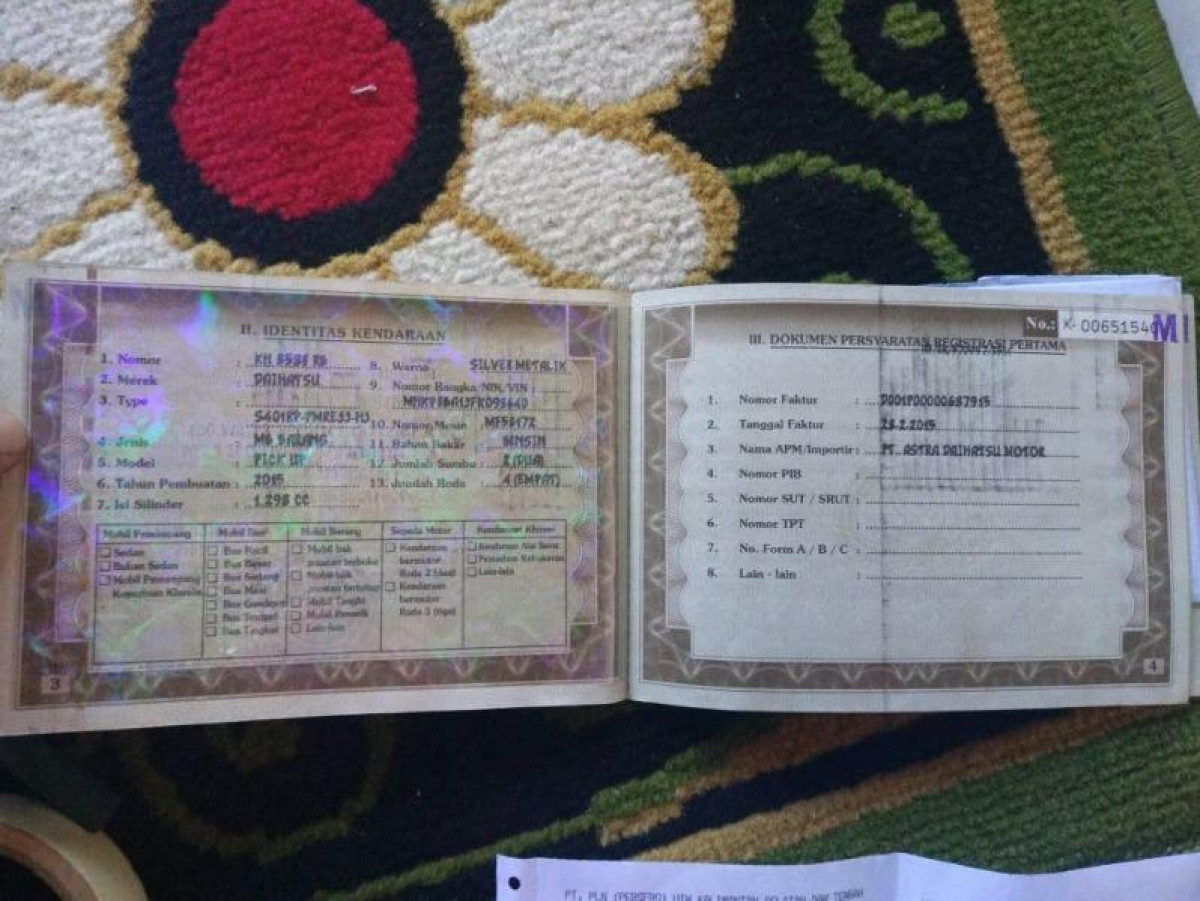 II. IDENTITAS KENDARAAN
1. Nomor : KH 8588 RG
2. Merek : DAIHATSU
3. Type :
S401RP-PMREJJ-HJ
4. Jenis : MB BARANG
5. Model : PICK UP
6. Tahun Pembuatan : 2015
7. Isi Silinder : 1.298 CC
8. Warna : SILVER METALIK
9. Nomor Rangka/NIK/VIN :
10. Nomor Mesin
11. Bahan Bakar : BENSIN
12. Jumlah Sumbu : 2 (DUA)
13. Jumlah Roda : 4 (EMPAT)
Mobil Penumpang
Sedan
Bukan Sedan
Mobil Penumpang
Keperluan Khusus
Mobil Bus
Bus Kecil
Bus Besar
Bus Sedang
Bus Maxi
Bus Gandeng
Bus Tempel
Bus Tingkat
Mobil Barang
Mobil bak
muatan terbuka
Mobil bak
muatan tertutup
Mobil Tangki
Mobil Penarik
Lain-lain
Sepeda Motor
Kendaraan
bermotor
Roda 2 (dua)
Kendaraan
bermotor
Roda 3 (tiga)
Kendaraan Khusus
Kendaraan Alat Berat
Pemadam Kebakaran
Lain-lain
3
No.: K- 0065154
M
III. DOKUMEN PERSYARATAN REGISTRASI PERTAMA
1. Nomor Faktur : D001P00000687915
2. Tanggal Faktur : 28-2-2015
3. Nama APM/Importir : PT. ASTRA DAIHATSU MOTOR
4. Nomor PIB :
5. Nomor SUT / SRUT :
6. Nomor TPT :
7. No. Form A / B / C :
8. Lain - lain :
4
PT. PLN (PERSERO) UIW KALIMANTAN SELATAN DAN TENGAH